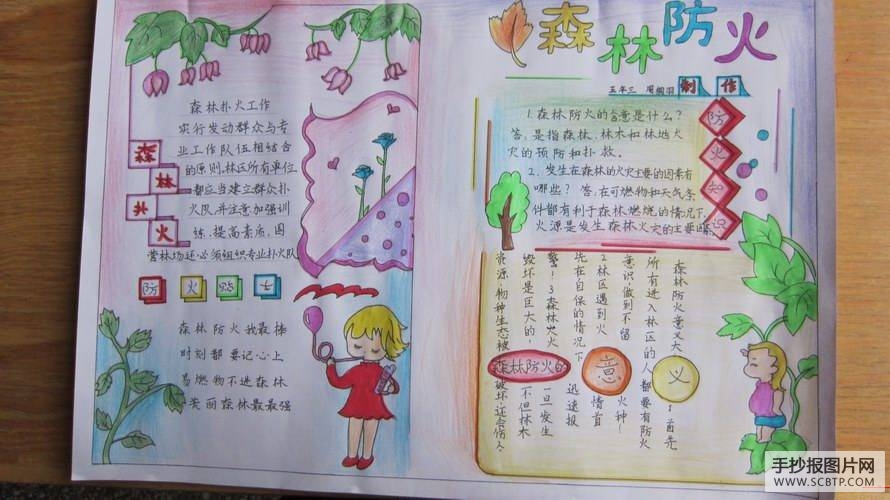 森林防火
五年三 周 羽 制作
森林扑火
森林扑火工作
实行发动群众与专
业工作队伍相结合
的原则.林区所有单位
都应当建立群众扑
火队,并注意加强训
练,提高素质,国
营林场还必须组织专业扑火队
防火贴士
森林防火我最棒
时刻都要记心上
易燃物不进森林
美丽森林最最强
防火知识
1.森林防火的含意是什么?
答:是指森林、林木和林地火
灾的预防和扑救。
2、发生在森林的火灾主要的因素有
哪些? 答:在可燃物和天气条
件都有利于森林燃烧的情况下,
火源是发生森林火灾的主要因
森林防火的意义
森林防火意义大!首先
所有进入林区的人都要有防火
意识做到不留火种!
2林区遇到火情首
先在自保的情况下迅速报
警!3森林火灾一旦发生
毁坏是巨大的!不但林木
资源.物种生态被破坏.还会伤人.
手抄报图片网
WWW.SCBTP.COM